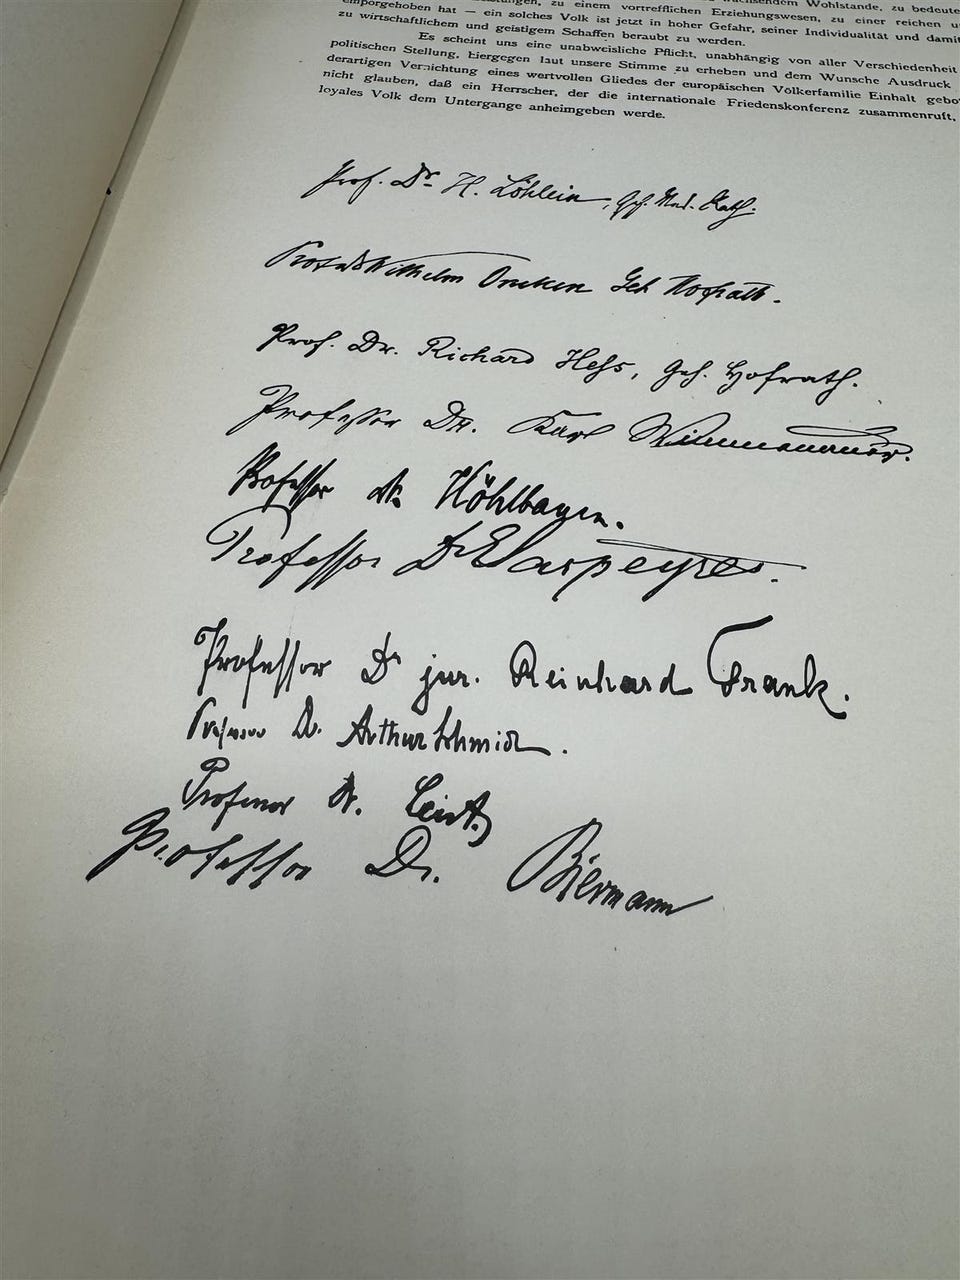 emporgehoben hat — ein solches Volk ist jetzt in hoher Gefahr, seiner Individualität und damit
zu einem vortrefflichen Erziehungswesen, zu einer reichen
Wohlstande, zu
zu wirtschaftlichem und geistigem Schaffen beraubt zu werden.
Es scheint uns eine unabweisliche Pflicht, unabhängig von aller Verschiedenheit
politischen Stellung, hiergegen laut unsere Stimme zu erheben und dem Wunsche Ausdruck
derartigen Vernichtung eines wertvollen Gliedes der europäischen Völkerfamilie Einhalt
nicht glauben, daß ein Herrscher, der die internationale Friedenskonferenz zusammenruft,
loyales Volk dem Untergange anheimgeben werde.
Prof. Dr. H. Löhlein, Geh. Med. Rath.
Profess. Wilhelm Oncken Geh Hofrath.
Prof. Dr. Richard Hess, Geh. Hofrath.
Professor Dr. Karl
Professor Dr. Höhlbaum.
Professor Dr E Laspeyres.
Professor Dr jur. Reinhard Frank.
Professor Dr. Arthur Schmidt.
Professor Dr. Leist.
Professor Dr. Biermann